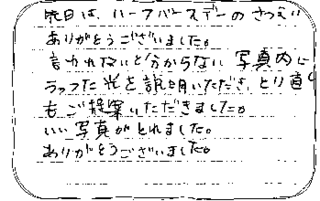 先日は、ハーフバースデーのさつえい
ありがとうございました。
言われないと分からない写真内に
うつった光を説明いただき、とり直し
もご提案いただきました。
いい写真がとれました。
ありがとうございました。